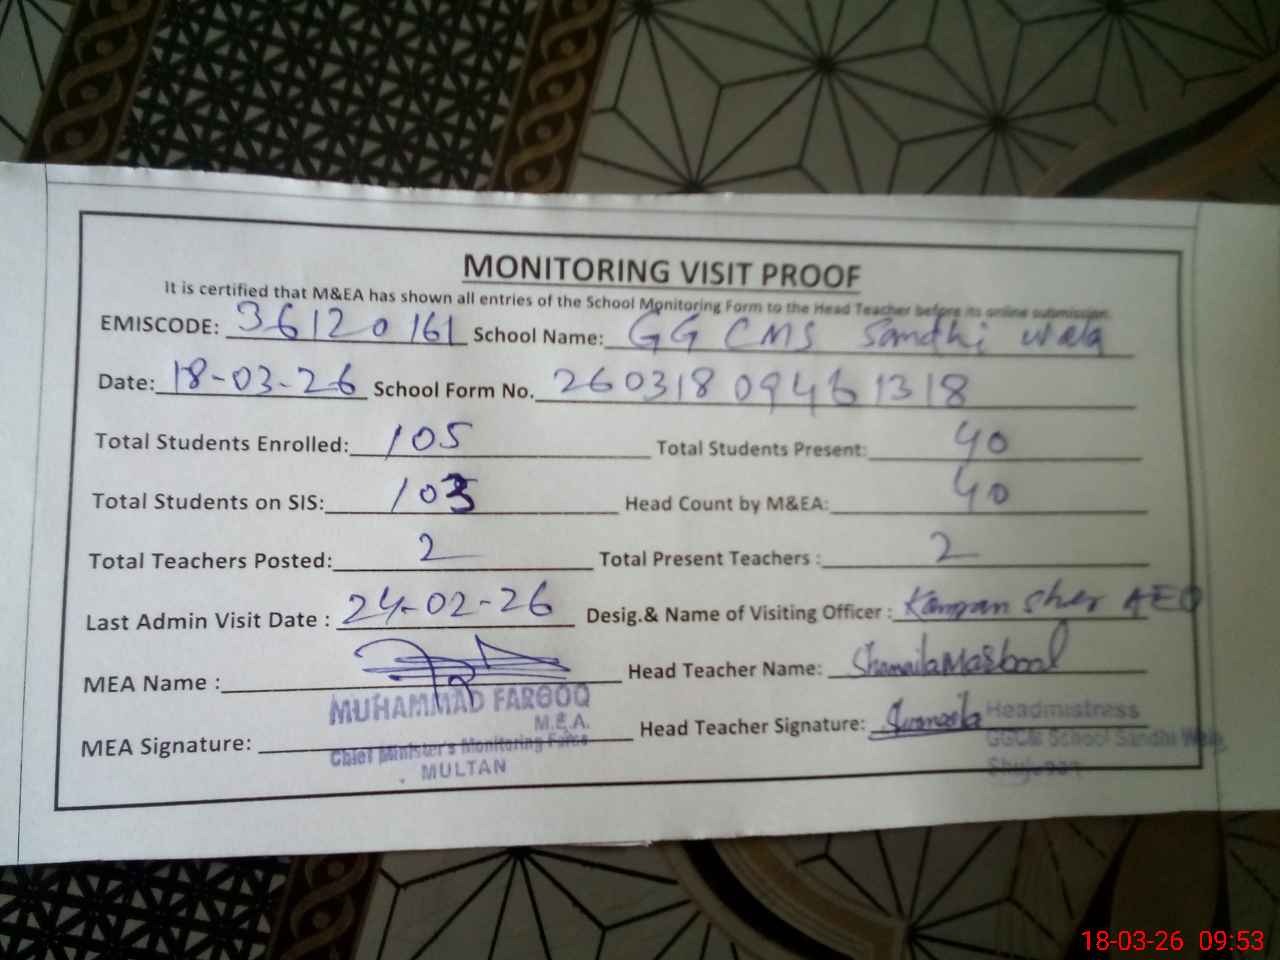 MONITORING VISIT PROOF
It is certified that M&EA has shown all entries of the School Monitoring Form to the Head Teacher before its online submission.
EMISCODE: 36120161 School Name: GGCMS Sandhi wala
Date: 18-03-26 School Form No. 26031809461318
Total Students Enrolled: 105 Total Students Present: 40
Total Students on SIS: 103 Head Count by M&EA: 40
Total Teachers Posted: 2 Total Present Teachers : 2
Last Admin Visit Date : 24-02-26 Desig.& Name of Visiting Officer : Kamran Sher AEO
MEA Name : Head Teacher Name: Shamaila Maqbool
MUHAMMAD FAROOQ
M.E.A.
Chief Minister's Monitoring Force
MULTAN
MEA Signature: Head Teacher Signature:
Headmistress
GGCM School Sandhi Wala
Shujabad
18-03-26 09:53